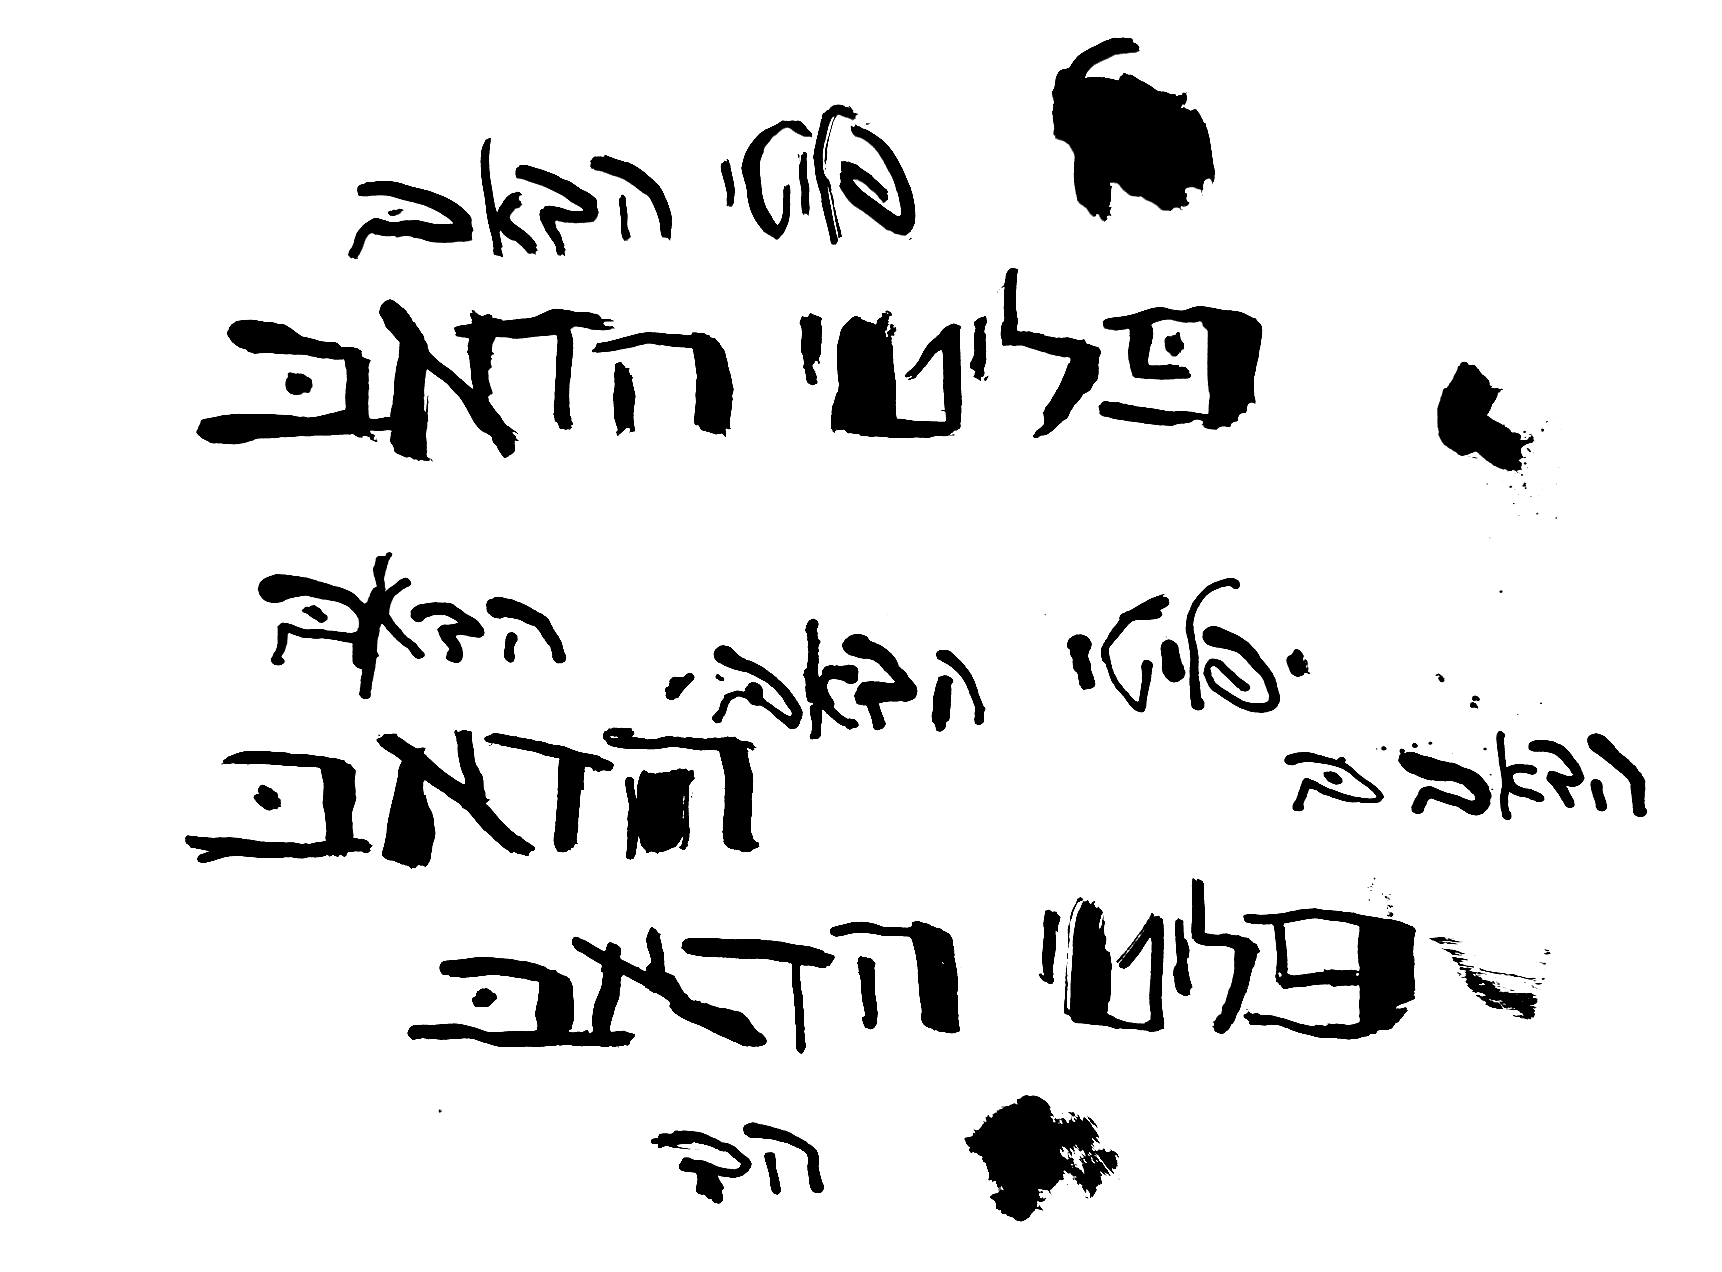 פליטי הדאבּ
פּליטי הדאבּ
הדאבּ
פליטי הדאבּ
הדאבּ
הדאב בּ
פליטי הדאבּ
הד